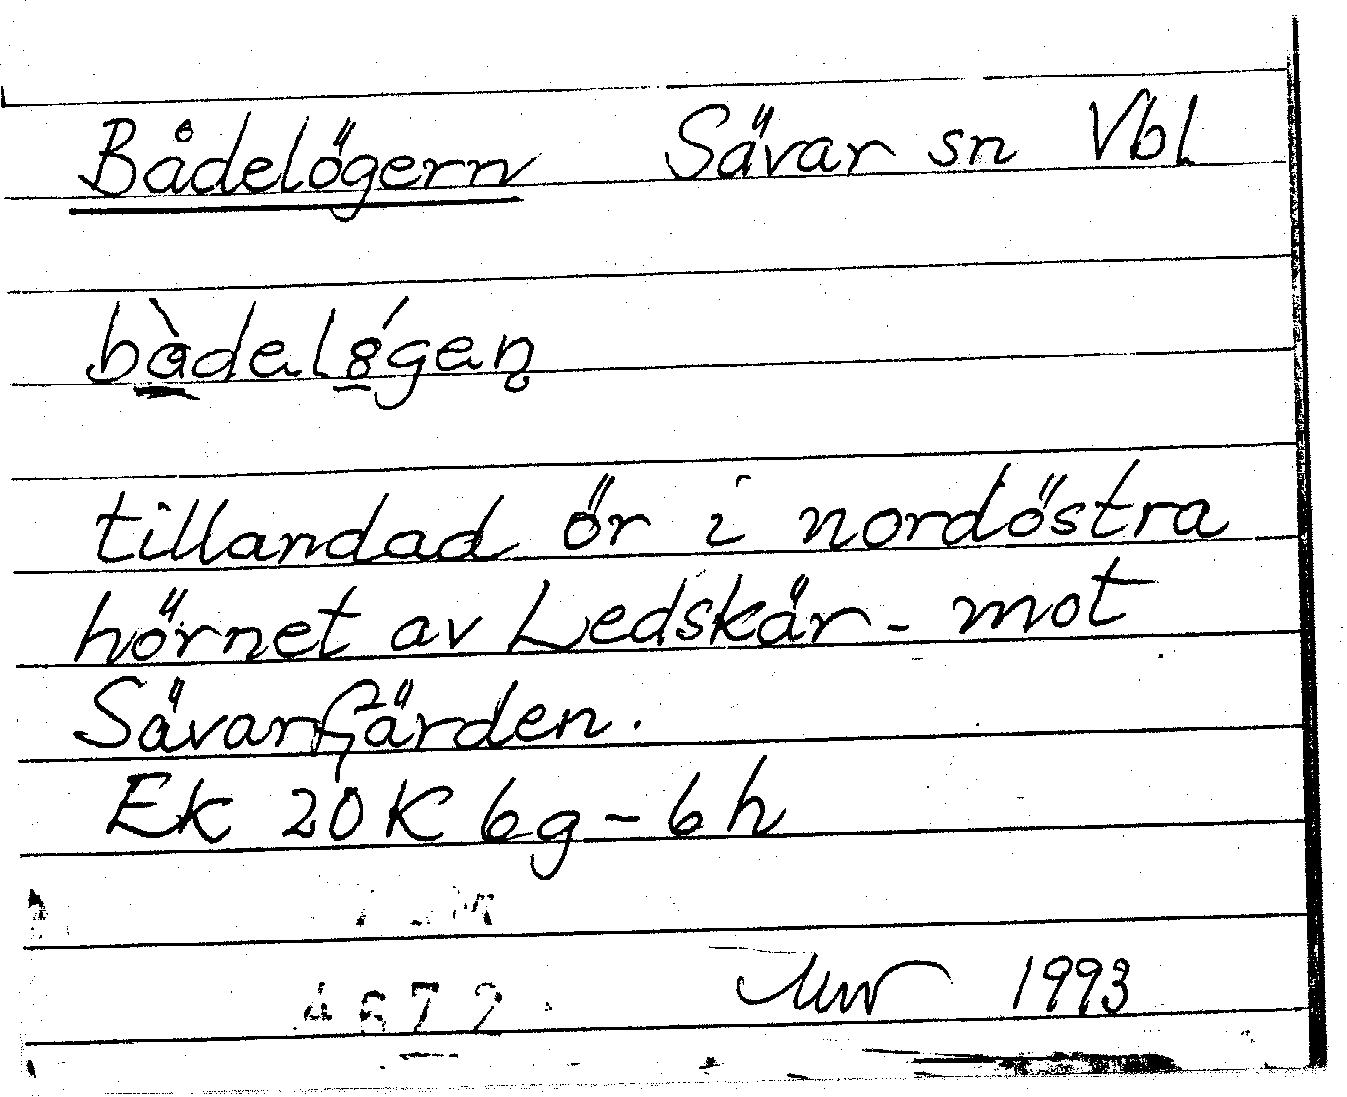 Bådelögern Sävar sn Vbl
bàdelǿgen̥
tillandad ör i nordöstra
hörnet av Ledskär - mot
Sävarfjärden.
Ek 20K 6g-6h
1993